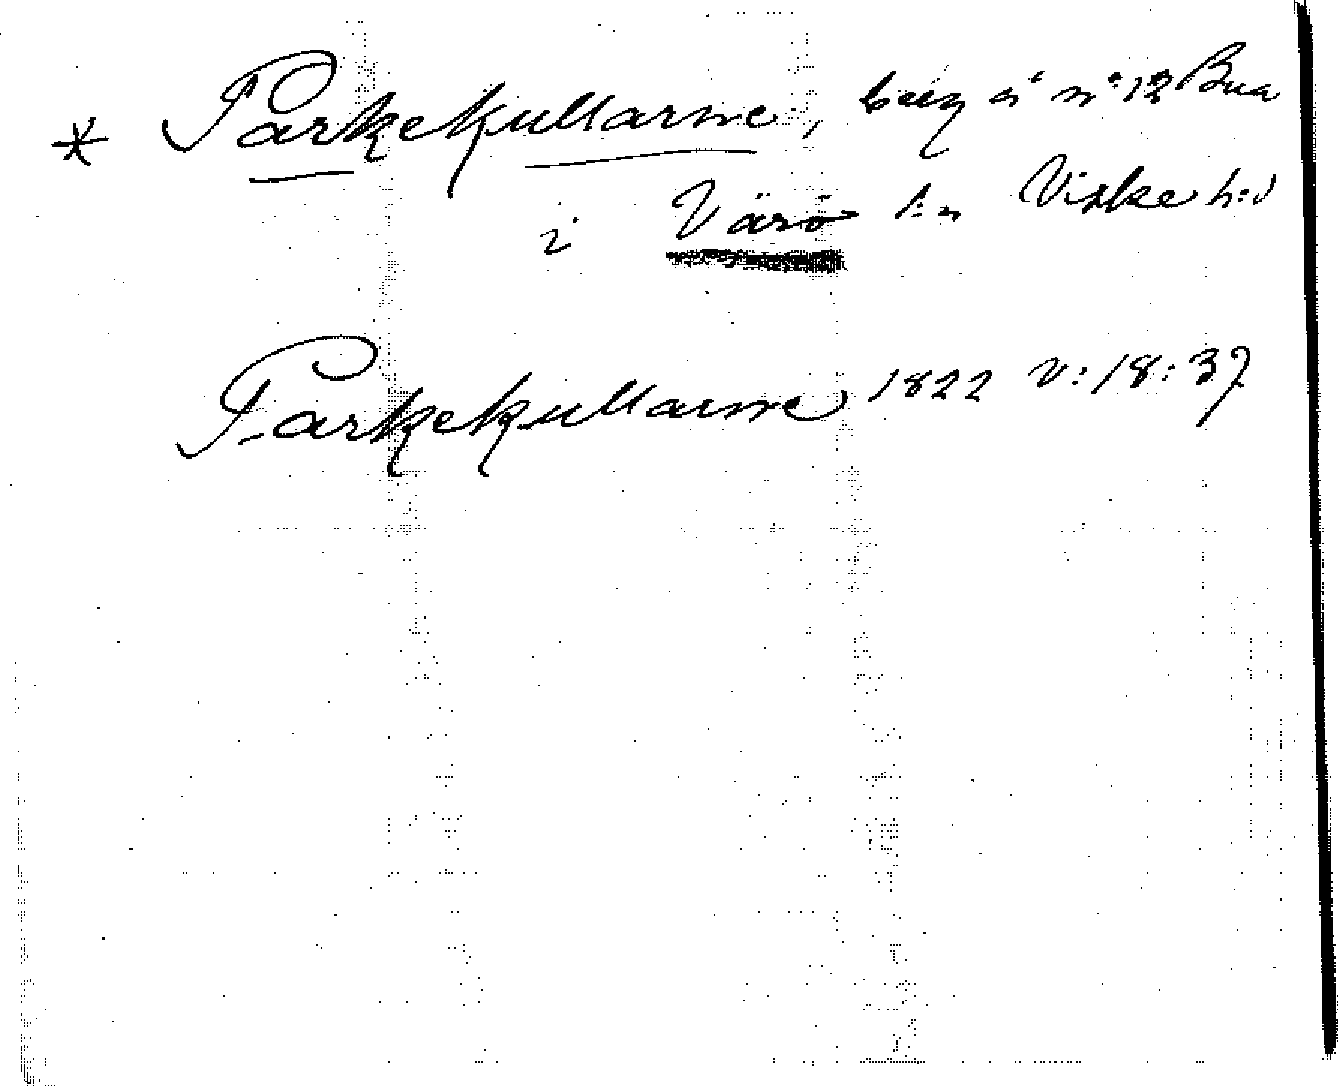 * Parkekullarne, beläg å n:o 12 Bua
i Värö s:n Viske h:d
Parkekullarne 1822 V: 18: 37